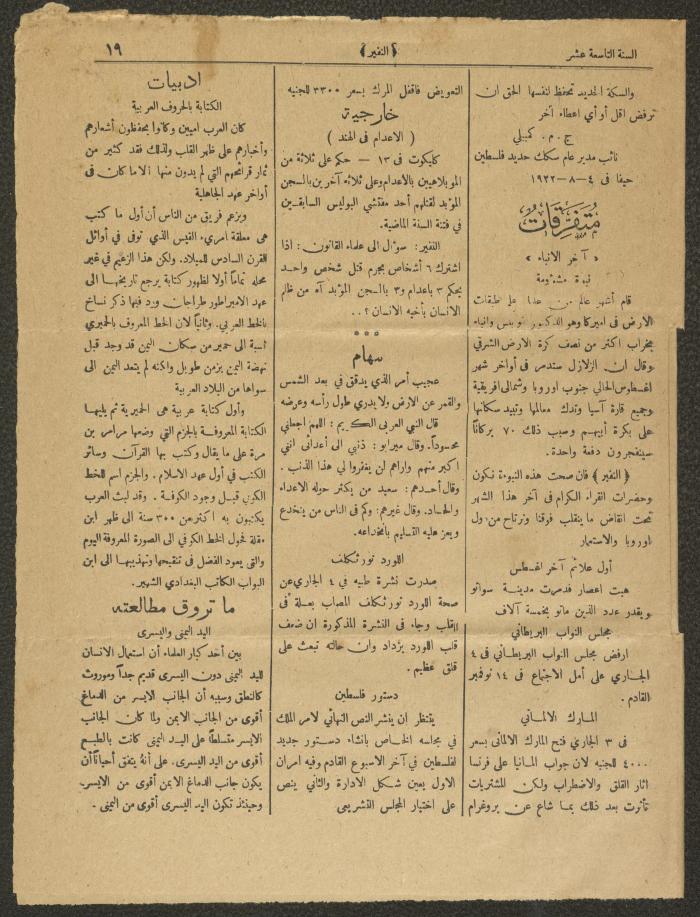 السنة التاسعة عشر
﴿ النفير ﴾
١٩
والسكة الحديد تحفظ لنفسها الحق ان
ترفض اقل أو أي اعطاء آخر
ج . م . كمبلي
نائب مدير عام سكك حديد فلسطين
حيفا في ٤-٨-١٩٢٢
متفرقات
« آخر الانباء »
نبوة مشئومة
قام أشهر عالم من علماء طبقات
الارض في اميركا وهو الدكتور نويلس وانباء
بخراب اكثر من نصف كرة الارض الشرقي
وقال ان الزلازل ستدمر في أواخر شهر
اغسطوس الحالي جنوب اوروبا وشمالي افريقية
وجميع قارة آسيا وتدك معالمها وتبيد سكانها
على بكرة أبيهم وسبب ذلك ٧٠ بركاناً
سينفجرون دفعة واحدة .
﴿ النفير ﴾ فان صحت هذه النبوءة نكون
وحضرات القراء الكرام في آخر هذا الشهر
تحت انقاض ما ينقلب فوقنا ونرتاح من دول
اوروبا والاستعمار
أول علائم آخر اغسطس
هبت اعصار فدمرت مدينة سواتو
ويقدر عدد الذين ماتو بخمسة آلاف
مجلس النواب البريطاني
ارفض مجلس النواب البريطاني في ٤
الجاري على أمل الاجتماع في ١٤ نوفمبر
القادم .
المارك الالماني
في ٣ الجاري فتح المارك الالماني بسعر
٤٠٠٠ للجنيه لان جواب المانيا على فرنسا
اثار القلق والاضطراب ولكن المشتريات
تأثرت بعد ذلك بما شاع عن بروغرام
التعويض فاقفل المرك بسعر ٣٣٠٠ للجنيه
خارجية
( الاعدام في الهند )
كليكوت في ١٣ — حكم على ثلاثة من
الموبلاهيين بالاعدام وعلى ثلاثة آخرين بالسجن
المؤبد لقتلهم أحد مفتشي البوليس السابقين
في فتنة السنة الماضية.
النفير: سؤال الى علماء القانون: اذا
اشترك ٦ أشخاص بجرم قتل شخص واحد
يحكم ٣ باعدام و٣ بالسجن المؤبد آه من ظلم
الانسان بأخيه الانسان ؟..
* * *
سهام
عجيب أمر الذي يدقق في بعد الشمس
والقمر عن الارض ولا يدري طول رأسه وعرضه
قال النبي العربي الكريم: اللهم اجعلني
محسوداً. وقال ميرابو: ذنبي الى أعدائي انني
اكبر منهم واراهم لن يغفروا لي هذا الذنب .
وقال أحدهم: سعيد من يكثر حوله الاعداء
والحساد. وقال غيرهم: وكم في الناس من ينخدع
ويعز عليه التسليم بانخداعه.
اللورد نورثكلف
صدرت نشرة طبيه في ٤ الجاري عن
صحة اللورد نورثكلف المصاب بعلة في
القلب وجاء في النشرة المذكورة ان ضعف
قلب اللورد يزداد وان حالته تبعث على
قلق عظيم .
دستور فلسطين
ينتظر ان ينشر النص النهائي لامر الملك
في مجلسه الخاص بانشاء دستور جديد
لفلسطين في آخر الاسبوع القادم وفيه امران
الاول يعين شكل الادارة والثاني ينص
على اختيار المجلس التشريعي
ادبيات
الكتابة بالحروف العربية
كان العرب اميين وكانوا يحفظون أشعارهم
وأخبارهم على ظهر القلب ولذلك فقد كثير من
ثمار قرائحهم التي لم يدون منها الا ما كان في
أواخر عهد الجاهلية
ويزعم فريق من الناس أن أول ما كتب
هي معلقة امريء القيس الذي توفى في أوائل
القرن السادس للميلاد. ولكن هذا الزعيم في غير
محله تماماً أولا لظهور كتابة يرجع تاريخها الى
عهد الامبراطور طراجان ورد فيها ذكر نساخ
بالخط العربي. وثانياً لان الخط المعروف بالحميري
نسبة الى حمير من سكان اليمن قد وجد قبل
نهضة اليمن بزمن طويل ولكنه لم يتعد اليمن الى
سواها من البلاد العربية
وأول كتابة عربية هي الحميرية ثم يليها
الكتابة المعروفة بالجزم التي وضعها مرامر بن
مرة على ما يقال وكتب بها القرآن وسائر
الكتب في أول عهد الاسلام . والجزم اسم للخط
الكوفي قبل وجود الكوفة . وقد لبث العرب
يكتبون به اكثر من ٣٠٠ سنة الى ظهر ابن
مقلة فحول الخط الكوفي الى الصورة المعروفة اليوم
والتي يعود الفضل في تنقيحها وتهذيبها الى ابن
البواب الكاتب البغدادي الشهير.
ما تروق مطالعته
اليد اليمنى واليسرى
يبين أحد كبار العلماء أن استعمال الانسان
لليد اليمنى دون اليسرى قديم جداً وموروث
كالنطق وسببه أن الجانب الايسر من الدماغ
أقوى من الجانب الايمن ولما كان الجانب
الايسر متسلطاً على اليد اليمنى كانت بالطبع
أقوى من اليد اليسرى. على أنه يتفق أحياناً أن
يكون جانب الدماغ الايمن أقوى من الايسر.
وحينئذ تكون اليد اليسرى أقوى من اليمنى .